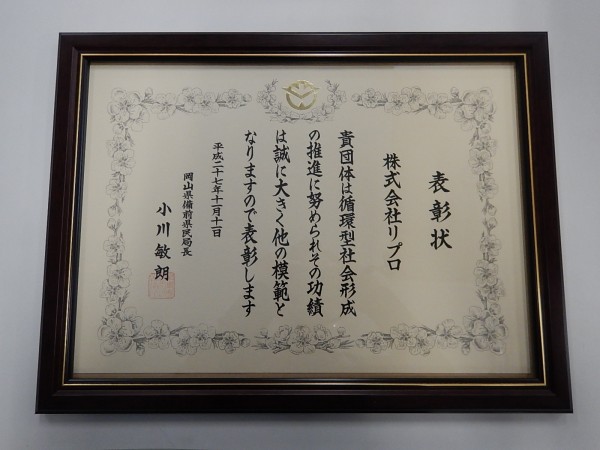 表彰状
株式会社リプロ
貴団体は循環型社会形成
の推進に努められその功績
は誠に大きく他の模範と
なりますので表彰します
平成二十七年十一月十一日
岡山県備前県民局長
小川敏朗